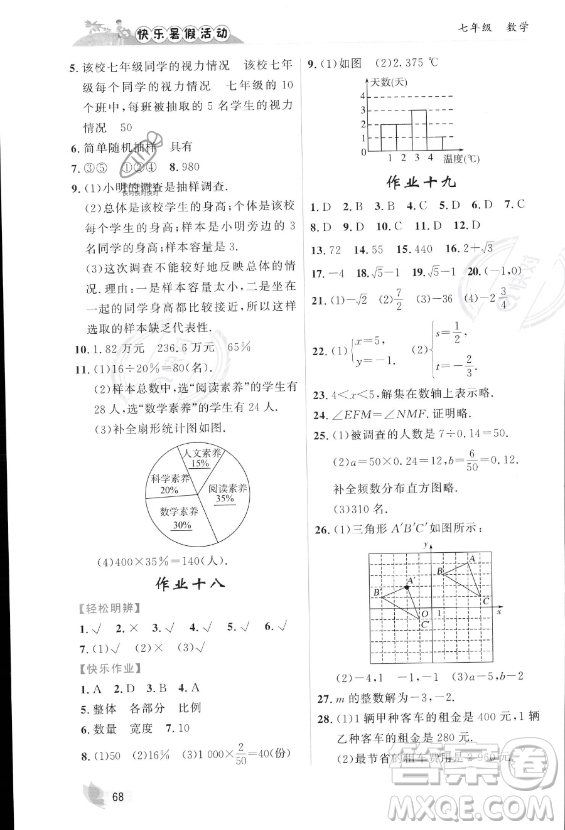 快乐暑假活动
七年级 数学
5. 该校七年级同学的视力情况 该校七年
级每个同学的视力情况 七年级的10
个班中，每班被抽取的5名学生的视力
情况 50
6. 简单随机抽样 具有
7. ③⑤ ①②④ 8. 980
9. (1)小明的调查是抽样调查.
(2)总体是该校学生的身高；个体是该
校每个学生的身高；样本是小明旁边的
3名同学的身高；样本容量是3.
(3)这次调查不能较好地反映总体的情
况. 理由：一是样本容量太小，二是坐在
一起的同学身高都比较接近，所以他
选取的样本缺乏代表性.
10. 1.82万元 236.6万元 65%
11. (1)16÷20%=80(名).
(2)样本总数中，选“阅读素养”的学生有
28人，选“数学素养”的学生有24人.
(3)补全扇形统计图如图.
人文素养
15%
科学素养
20%
阅读素养
35%
数学素养
30%
(4)400×35%=140(人).
作业十八
【轻松明辨】
1. √ 2. × 3. √ 4. √ 5. √ 6. √
7. √
【快乐作业】
1. A 2. D 3. B 4. D
5. 整体 各部分 比例
6. 数量 宽度 7. 10
8. (1)50 (2)16% (3)1 000×2/50=40(份)
9. (1)如图 (2)2.375 ℃
天数(天)
4
3
2
1
0
1 2 3 4
温度(℃)
作业十九
1. D 2. B 3. D 4. C 5. A 6. D
7. B 8. D 9. A 10. C 11. D 12. D
13. 72 14. x 15. 440 16. 2+√3
17. -4 18. √5-1 19. √5-1 20. (-1,0)
21. (1)-1 (2)7/2 (3)6 (4)-2 3/4
22. (1){x=5, y=1. (2){s=1/2, t=-1/3.
23. 4<x<5，解集在数轴上表示略.
24. ∠EFM=∠NMF. 证明略.
25. (1)被调查的人数是7÷0.14=50.
(2)a=50×0.24=12，b=6/50=0.12.
补全频数分布直方图略.
(3)310名.
26. (1)三角形A′B′C′如图所示：
y
A
B
C
A′
B′
C′
O
1
x
(2)-4，1 -1，-1 (3)a-5，b-2
27. m的整数解为-3，-2.
28. (1)1辆甲种客车的租金是400元，1辆
乙种客车的租金是280元.
(2)最节省的租车费用是2 960元.
68